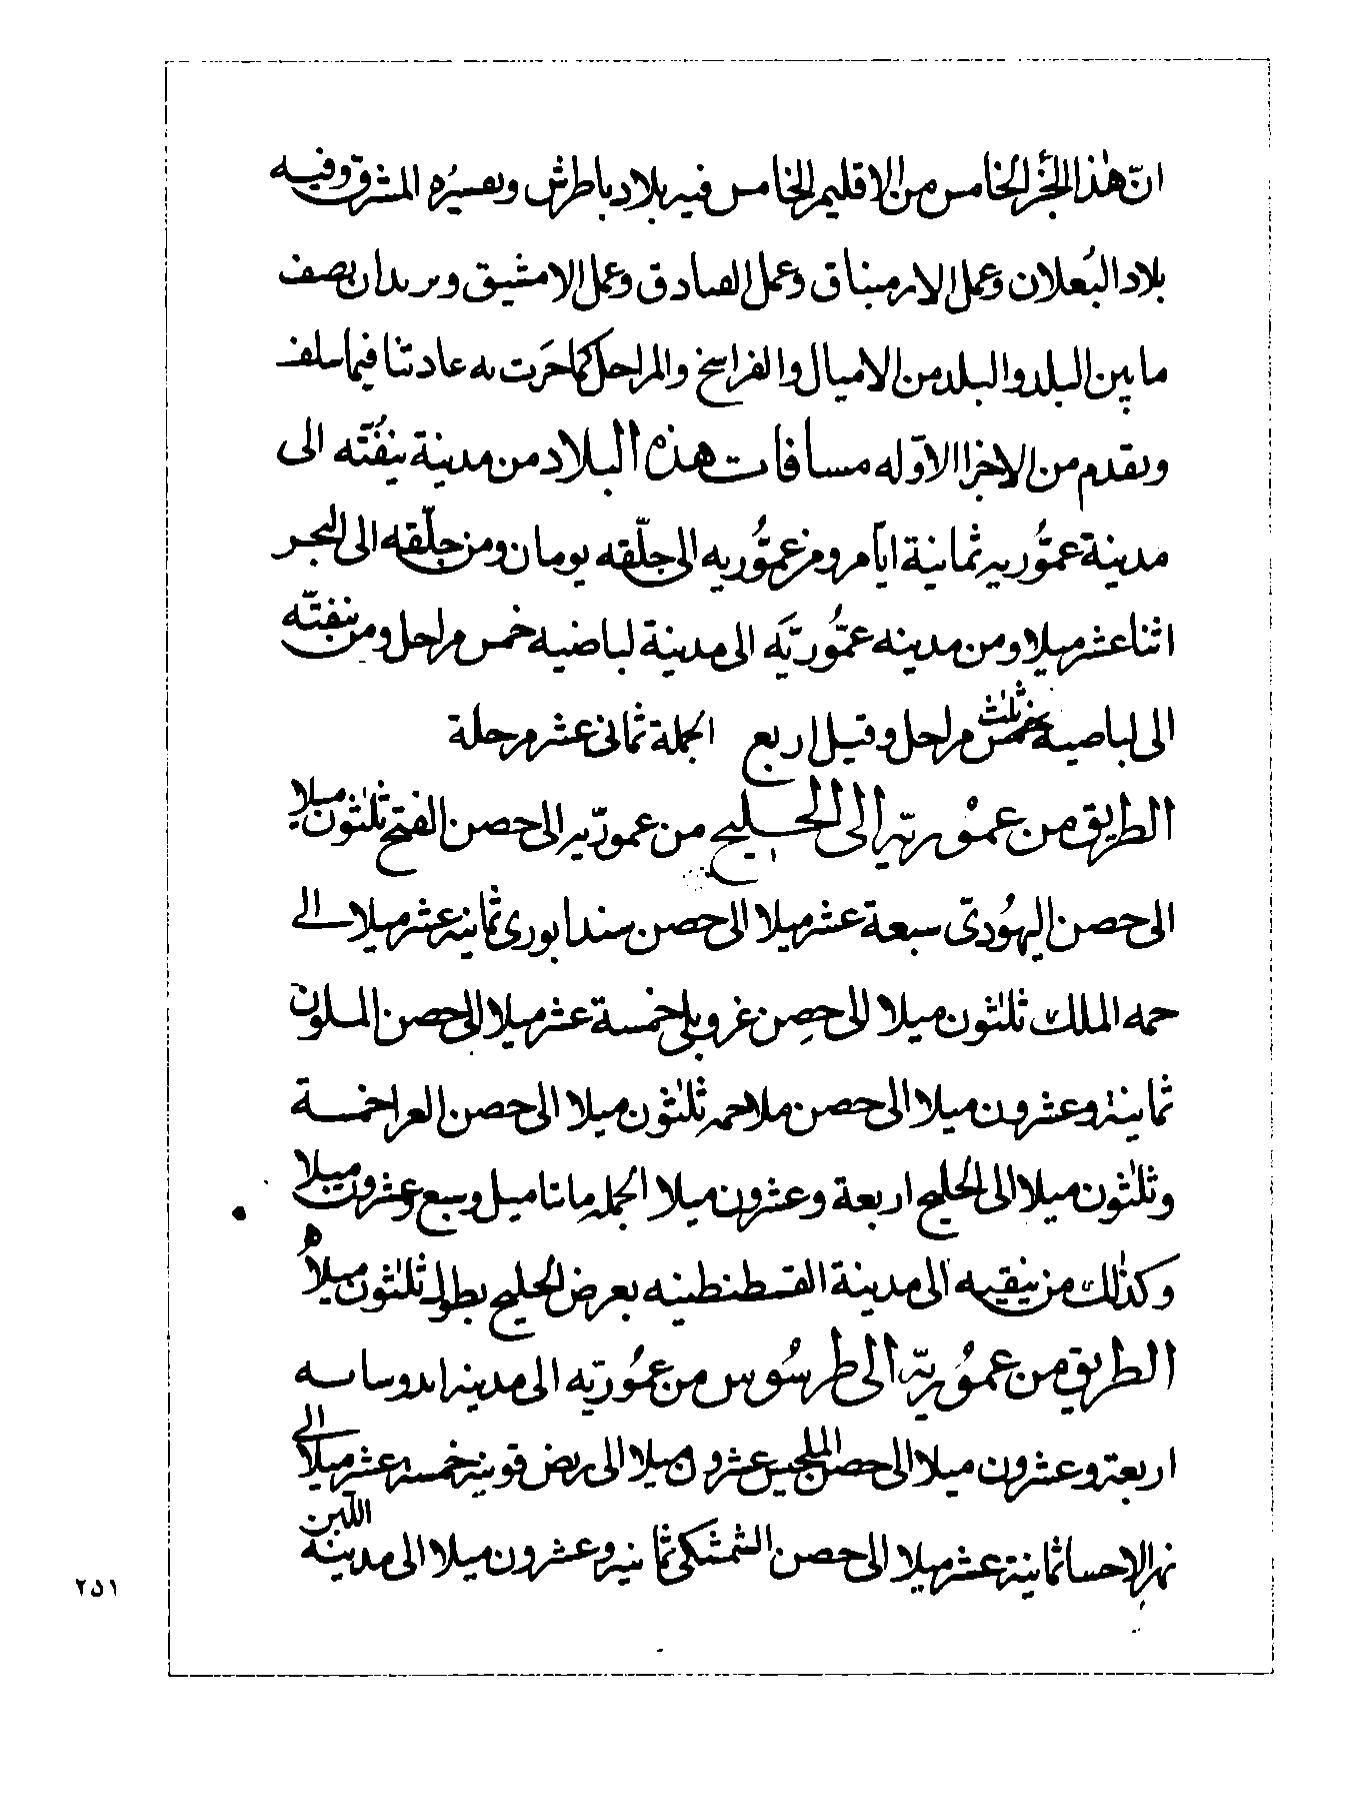 انّ هٰذا الجزء الخامس من الاقليم الخامس فيه بلاد باطرش وتفسيره المشرق وفيه
بلاد البُعلان وعمل الارميناق وعمل الصادق وعمل الامشيق ونريد ان نصف
ما بين البلد والبلد من الاميال والفراسخ والمراحل كما جَرت به عادتنا فيما سلف
وتقدم من الاجزا الاوله مسافات هذه البلاد من مدينة ينفُتّه الى
مدينة عمّوريه ثمانية ايام ومن عمّوريه الى جلّقه يومان ومن جلّقه الى البحر
اثنا عشر ميلا ومن مدينه عمّوريّه الى مدينة لباضيه خمس مراحل ومن ينفتّه
الى لباضيه خمس ثلث مراحل وقيل اربع الجملة ثمانى عشر مرحلة
الطريق من عمّوريّه الى الخليج من عموريّه الى حصن الفتح ثلثون ميلا
الى حصن اليهُودىّ سبعة عشر ميلا الى حصن سندابورى ثمانيه عشر ميلا الى
حمه الملك ثلثون ميلا الى حصن غروبلى خمسة عشر ميلا الى حصن الملون
ثمانية وعشرون ميلا الى حصن ملاحمه ثلثون ميلا الى حصن العرا خمسة
وثلثون ميلا الى الخليج اربعة وعشرون ميلا الجمله ماتا ميل وسبع وعشرون ميلا
وكذلك من نيقيه الى مدينة القسطنطينه بعرض الخليج بطوله ثلثون ميلا ه
الطريق من عموُريّه الى طرسُوس من عمُوريّه الى مدينه ابدوساسه
اربعة وعشرون ميلا الى حصن الملجيس عشرون ميلا الى ربض قونيه خمسة عشر ميلا الى
نهر الاحسا ثمانية عشر ميلا الى حصن الشمشكى ثمانيه وعشرون ميلا الى مدينة اللبن
٢٥١